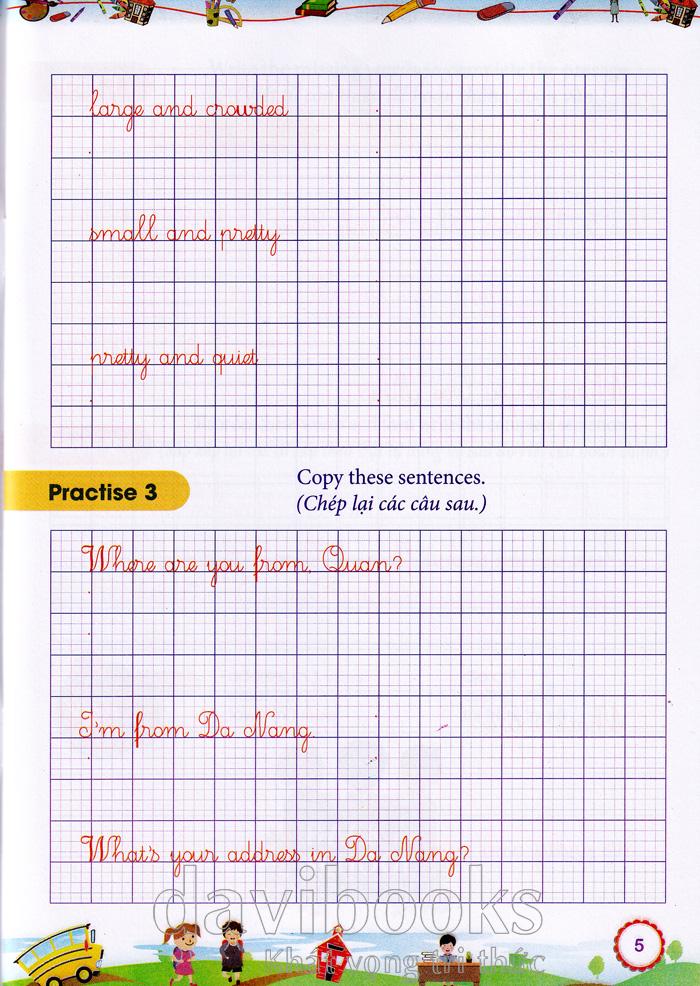 large and crowded
small and pretty
pretty and quiet
Practise 3
Copy these sentences.
(Chép lại các câu sau.)
Where are you from, Quan?
I'm from Da Nang.
What's your address in Da Nang?
davibooks
Khát vọng tri thức
5